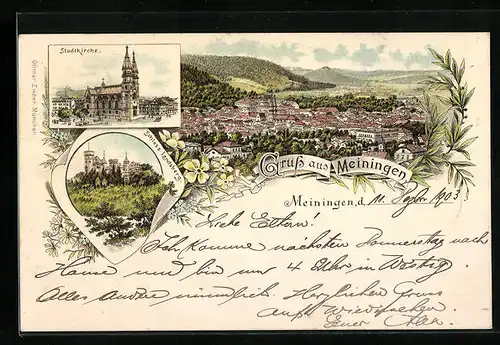 Stadtkirche.
Ottmar Zieher, München
Schloss Landsberg
Gruß aus Meiningen
Meiningen, d. 11. 1903
Liebe Eltern!
Ich komme nächsten Donnerstag nach
Hause und bin um 4 Uhr in
Alles Andre mündlich. Herzlichen Gruss
auf Wiedersehen
Euer